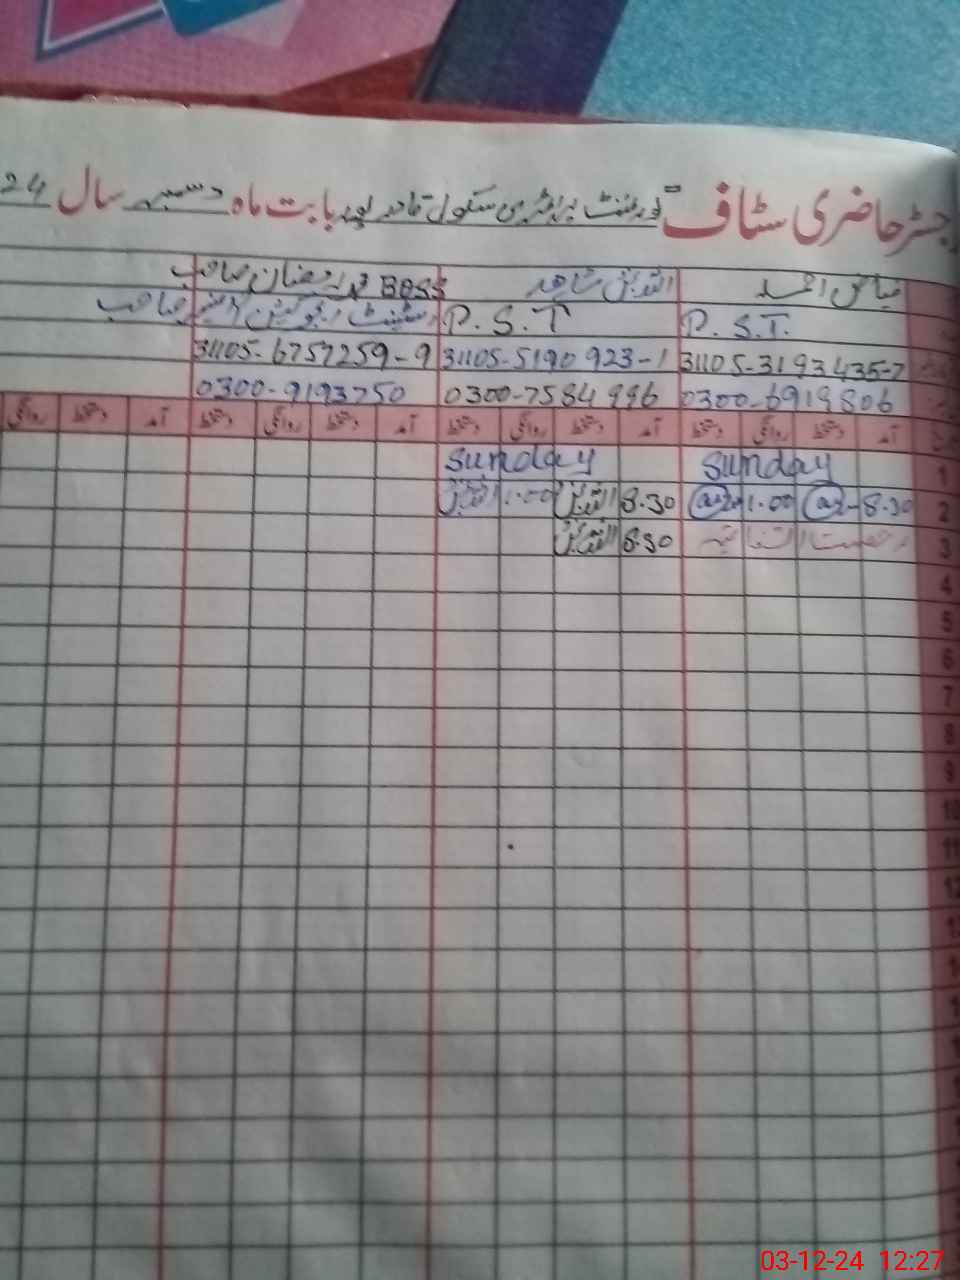 رجسٹر حاضری سٹاف گورنمنٹ پرائمری سکول قادر پور بابت ماہ دسمبر سال 24
فیاض احمد شاہد Boss محمد رمضان صاحب
P.S.T. P.S.T اسسٹنٹ ایجوکیشن آفیسر صاحب
31105-3193435-7 31105-5190923-1 31105-6757259-9
0300-6919806 0300-7584996 0300-9193750
آمد دستخط روانگی دستخط آمد دستخط روانگی دستخط آمد دستخط روانگی دستخط آمد دستخط روانگی
1 Sunday Sunday
2 8.30 1.00 8.30 1.00
3 رخصت اتفاقیہ 8.30
4
5
6
7
8
9
10
11
12
03-12-24 12:27